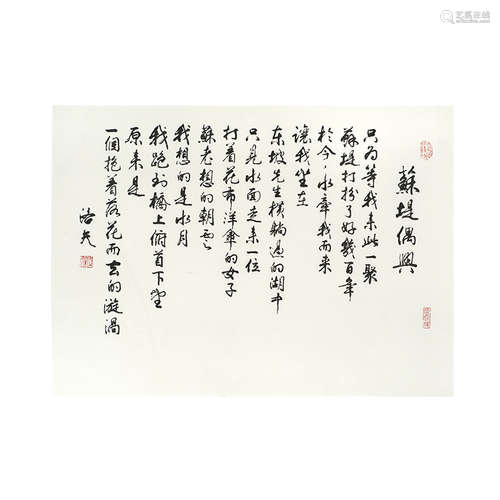 蘇堤偶興
只為等我来此一聚
蘇堤打扮了好幾百年
於今,水牽我而来
讓我坐在
东坡先生横躺過的湖中
只見水面走来一位
打着花布洋傘的女子
蘇老想的朝雲
我想的是水月
我跑到橋上俯首下望
原来是
一個抱着落花而去的漩渦
洛夫